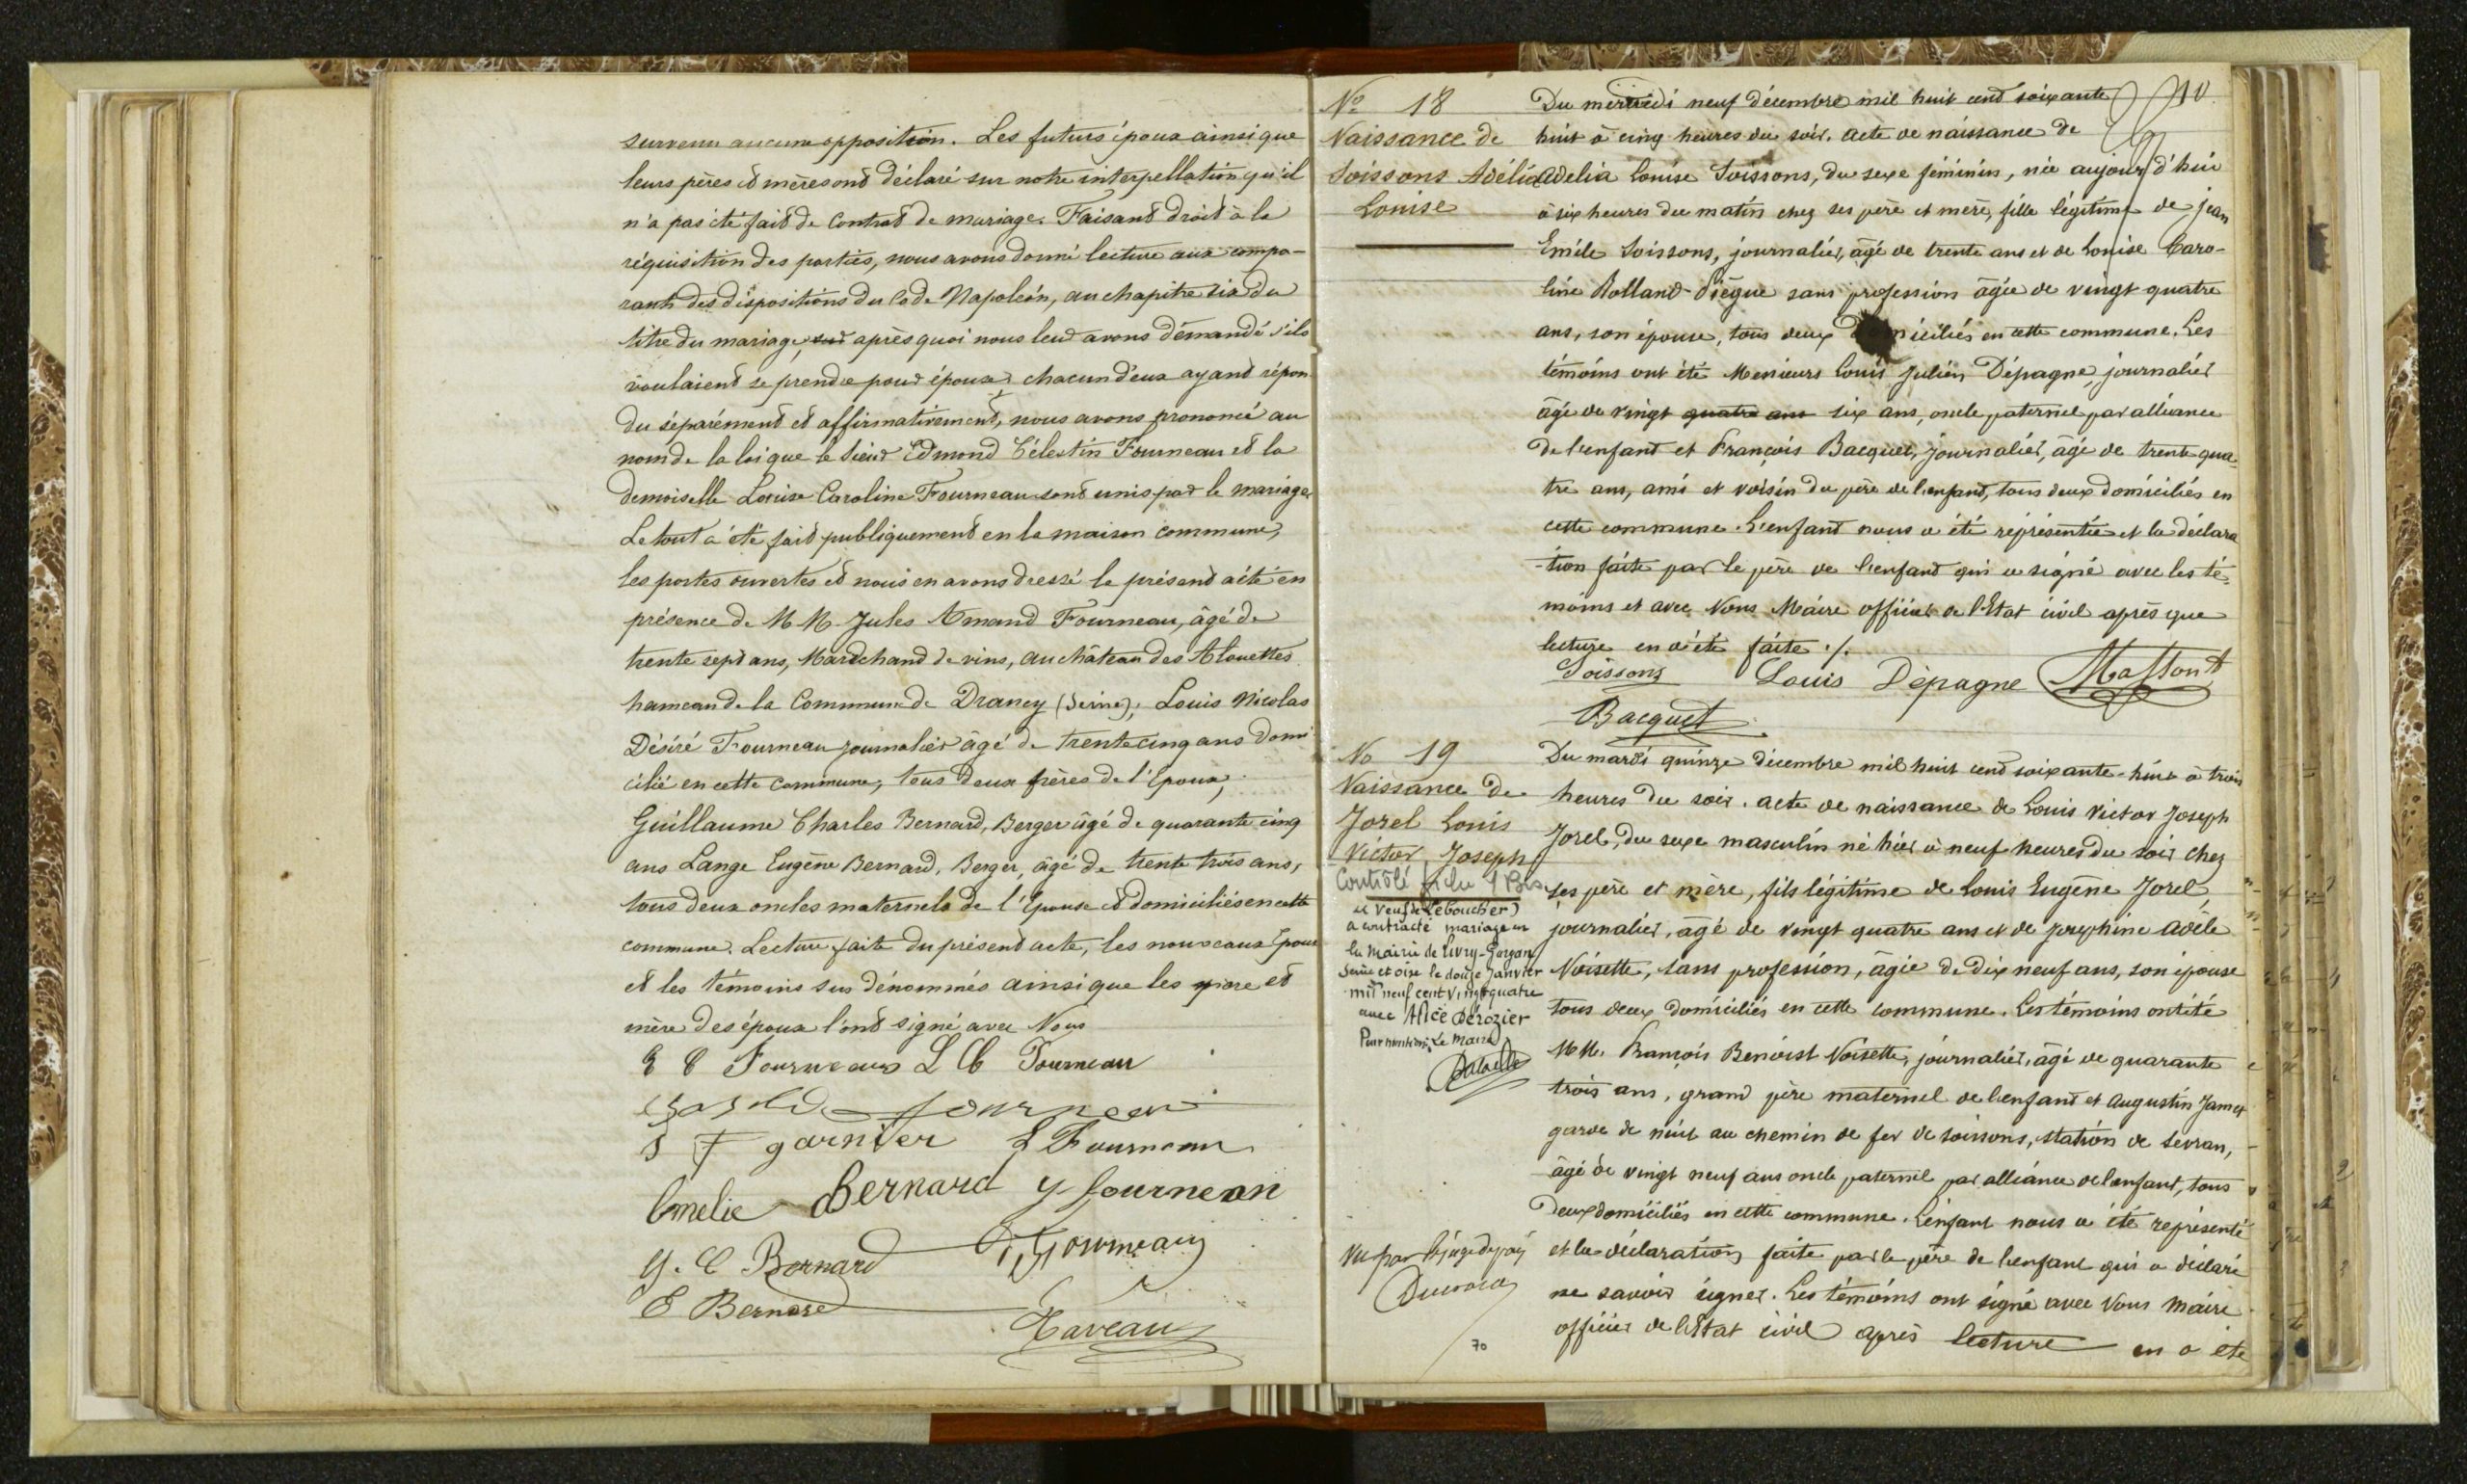 survenu aucune opposition. Les futurs époux ainsi que
leurs pères et mères ont déclaré sur notre interpellation qu'il
n'a pas été fait de Contrat de mariage. Faisant droit à la
réquisition des parties, nous avons donné lecture aux compa-
rants des dispositions du Code Napoléon, au chapitre six du
titre du mariage, après quoi nous leur avons démandé s'ils
voulaient se prendre pour époux chacun d'eux ayant répon
du séparément et affirmativement, nous avons prononcé au
nom de la loi que le sieur Edmond Célestin Fourneau et la
demoiselle Louise Caroline Fourneau sont unis par le mariage
Le tout à été fait publiquement en la maison commune,
les portes ouvertes et nous en avons dressé le présent acte en
présence de MM. Jules Amand Fourneau, âgé de
trente sept ans, Marchand de vins, au château des Alouettes
hameau de la Commune de Drancy (Seine), Louis Nicolas
Désiré Fourneau journalier âgé de trente cinq ans domi
cilié en cette commune, tous deux frères de l'Epoux,
Guillaume Charles Bernard, Berger âgé de quarante cinq
ans Lange Eugène Bernard, Berger, âgé de trente trois ans,
tous deux oncles maternels de l'Epouse et domiciliés en cette
commune. Lecture faite du présent acte, les nouveaux Epoux
et les témoins sus dénommés ainsi que les père et
mère des époux l'ont signé avec Nous
E C Fourneaux L C Fourneau
fourneau
S F garnier L Fourneau
Amelie Bernard y fourneau
G. C Bernard Fourneau
E Bernard
Taveau
No 18
Naissance de
Soissons Adélia
Louise
10
Du mercredi neuf décembre mil huit cent soixante
huit à cinq heures du soir. acte de naissance de
Adelia Louise Soissons, du sexe féminin, née aujourd'hui
à six heures du matin chez ses père et mère, fille légitime de jean
Emile Soissons, journalier, âgé de trente ans et de Louise Caro-
line Rolland-Diègue sans profession âgée de vingt quatre
ans, son épouse, tous deux domiciliés en cette commune. Les
témoins ont été Messieurs Louis Julien Dépagne, journalier
âgé de vingt quatre ans six ans, oncle paternel par alliance
de l'enfant et François Bacquet, journalier, âgé de trente qua-
tre ans, ami et voisin du père de l'enfant, tous deux domiciliés en
cette commune. L'enfant nous a été réprésentée et la déclara
-tion faite par le père de l'enfant qui a signé avec les té-
moins et avec Nous Maire officier de l'Etat civil après que
lecture en a été faite ./.
Soissons Louis Dépagne Massont
Bacquet
No 19
Naissance de
Jorel Louis
Victor, Joseph
Contrôlé
(veuf de Leboucher)
a contracté mariage en
la Mairie de Livry-Gargan
Seine et oise le douze Janvier
mil neuf cent vingt quatre
avec Alice Dérozier
Pour mention, Le Maire
Vu par le juge de paix
70
Du mardi quinze décembre mil huit cent soixante-huit à trois
heures du soir. acte de naissance de Louis Victor Joseph
Jorel, du sexe masculin né hier à neuf heures du soir chez
ses père et mère, fils légitime de Louis Eugène Jorel,
journalier, âgé de vingt quatre ans et de Josephine Adèle
Noisette, sans profession, âgée de dix neuf ans, son épouse
tous deux domiciliés en cette commune. Les témoins ont été
MM. François Benoist Noisette, journalier, âgé de quarante
trois ans, grand père maternel de l'enfant et Augustin Jamet
garde de nuit au chemin de fer de soissons, station de Sevran,
âgé de vingt neuf ans oncle paternel par alliance de l'enfant, tous
Deux domiciliés en cette commune. L'enfant nous a été représenté
et la déclaration faite par le père de l'enfant qui a déclaré
ne savoir signer. Les témoins ont signé avec Nous Maire
officier de l'Etat civil après lecture en a été